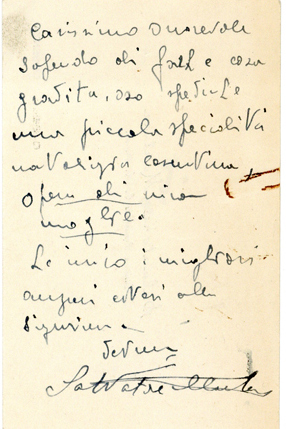 Carissimo Onorevole
sapendo di farLe cosa
gradita, oso spedirLe
una piccola specialità
natalizia casentina
opera di mia
moglie.
Le invio i migliori
auguri estesi alla
Signora
Salvatore